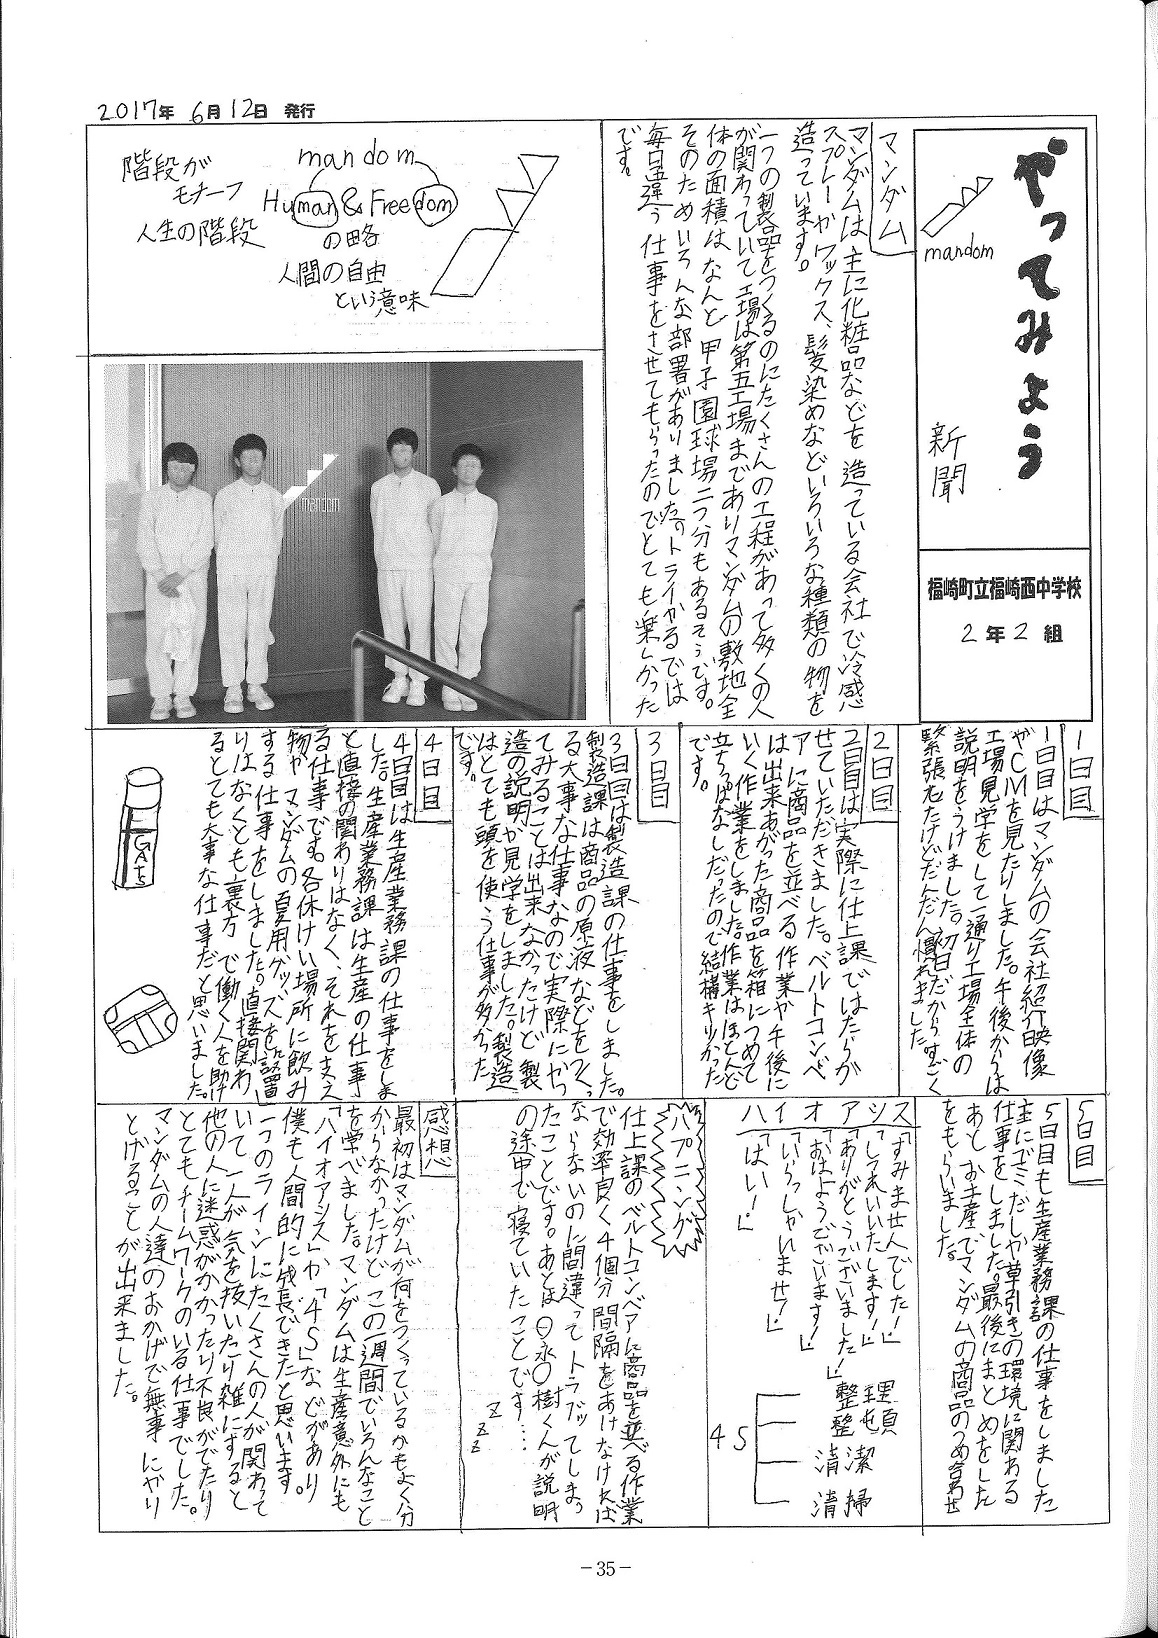 2017年 6月12日 発行
やってみよう
新聞
mandom
福崎町立福崎西中学校
2年2組
マンダム
マンダムは主に化粧品などを造っている会社で冷感
スプレーやワックス、髪染めなどいろいろな種類の物を
造っています。
一つの製品をつくるのにたくさんの工程があって多くの人
が関わっていて工場は第五工場まであリマンダムの敷地全
体の面積はなんと甲子園球場二つ分もあるそうです。
そのためいろんな部署がありました。トライやるでは
毎日違う仕事をさせてもらったのでとても楽しかった
です。
階段が
モチーフ
人生の階段
mandom
Human & Freedom
の略
人間の自由
という意味
mandom
1日目
1日目はマンダムの会社紹介映像
やCMを見たりしました。午後からは
工場見学をして一通り工場全体の
説明をうけました。初日だからすごく
緊張したけどだんだん慣れました
2日目
2日目は実際に仕上課ではたらか
せていただきました。ベルトコンベ
アに商品を並べる作業や午後に
は出来あがった商品を箱につめて
いく作業をしました。作業はほとんど
立ちっぱなしだったので結構キツかった
です。
3日目
3日目は製造課の仕事をしました。
製造課は商品の原液などをつく
る大事な仕事なので実際にやっ
てみることは出来なかったけど製
造の説明か見学をしました。製造
はとても頭を使う仕事が多かった
です。
4日目
4日目は生産業務課の仕事をしま
した。生産業務課は生産の仕事
と直接の関わりはなく、それを支え
る仕事です。各休けい場所に飲み
物や マンダムの夏用グッズを設置
する仕事をしました。直接関わ
りはなくとも裏方で働く人を助け
るとても大事な仕事だと思いました。
GATS
5日目
5日目も生産業務課の仕事をしました
主にゴミだしや草引きの環境に関わる
仕事をしました。最後にまとめをした
あと お土産でマンダムの商品のつめ合わせ
をもらいました。
ス「すみませんでした!」
シ「しつれいいたします!」
ア「ありがとうございました!」
オ「おはようございます!」
イ「いらっしゃいませ!」
ハ「はい!」
4S
整理
整頓
清潔
清掃
ハプニング
仕上課のベルトコンベアに商品を並べる作業
で効率良く4個分間隔をあけなければ
ならないのに間違ってトラブってしまっ
たことです。あとは〇永〇樹くんが説明
の途中で寝ていたことです…
zzz
感想
最初はマンダムが何をつくっているかもよく分
からなかったけど この一週間でいろんなこと
を学べました。マンダムは生産意外にも
「ハイオアシス」か「4S」などがあり
僕も人間的に成長できたと思います。
一つのラインにたくさんの人が関わって
いて一人が気を抜いたり雑にすると
他の人に迷惑がかかったり不良がでたり
とてもチームワークのいる仕事でした。
マンダムの人達のおかげで無事にやり
とげることが出来ました。
-35-